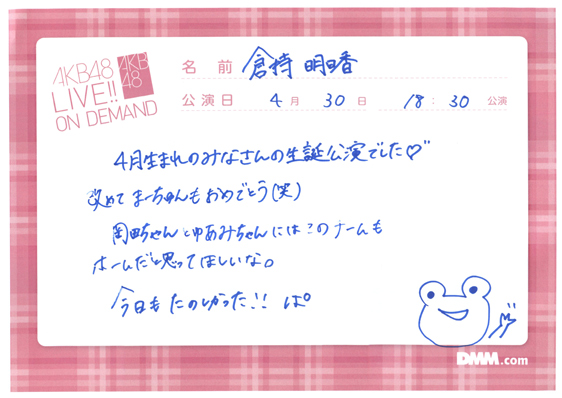 AKB48
LIVE!!
ON DEMAND
AKB
48
名 前 倉持 明日香
公演日 4 月 30 日 18 : 30 公演
4月生まれのみなさんの生誕公演でした♡
改めて まーちゅんもおめでとう(笑)
岡田ちゃんとゆあみちゃんにはこのチームも
ホームだと思ってほしいな。
今日もたのしかった!! ぱ。
DMM.com